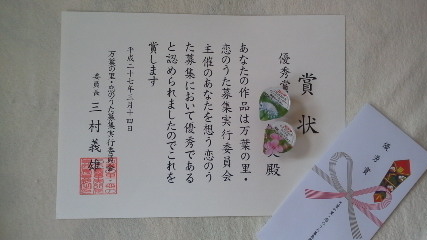 賞状
優秀賞
殿
あなたの作品は万葉の里・
恋のうた募集実行委員会
主催のあなたを想う恋のう
た募集において優秀である
と認められましたのでこれを
賞します
平成二十七年二月十四日
万葉の里・恋のうた募集実行委員会
委員長 三村義雄
優秀賞